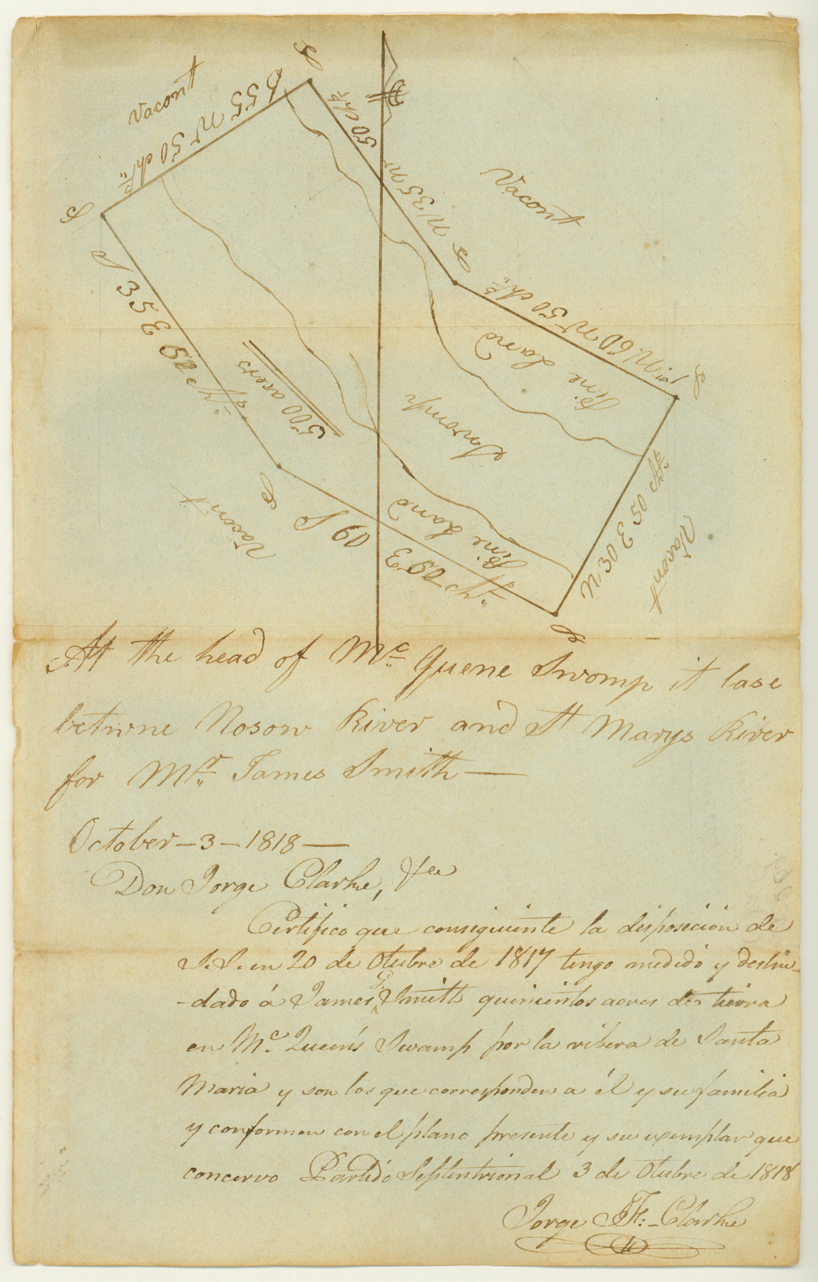 Vacont
S 55 W 50 chs
P
P
50 chs
N 35 W
P
Vacont
N 60 W 50 chs
P
Pine Land
Swomp
Pine Land
500 acers
S 35 E 50 chs
P
Vacont
S 60 E 50 chs
N 30 E 50 chs
Vacont
P
At the head of Mc Quene Swomp it lase
betwne Nosow River and St Marys River
for Mr James Smith —
October – 3 – 1818 —
Don Jorge Clarke, &ca
Certifico que consiguiente la disposicion de
S.S. en 20 de Otubre de 1817 tengo medido y deslin-
-dado á James Smith quinientos acres de tierra
en Mc Queen's Swamp por la ribera de Santa
Maria y son los que corresponden a él y su familia
y conformen con el plano presente y su exemplar que
concervo Partido Septentrional 3 de Otubre de 1818
Jorge J. F. Clarke